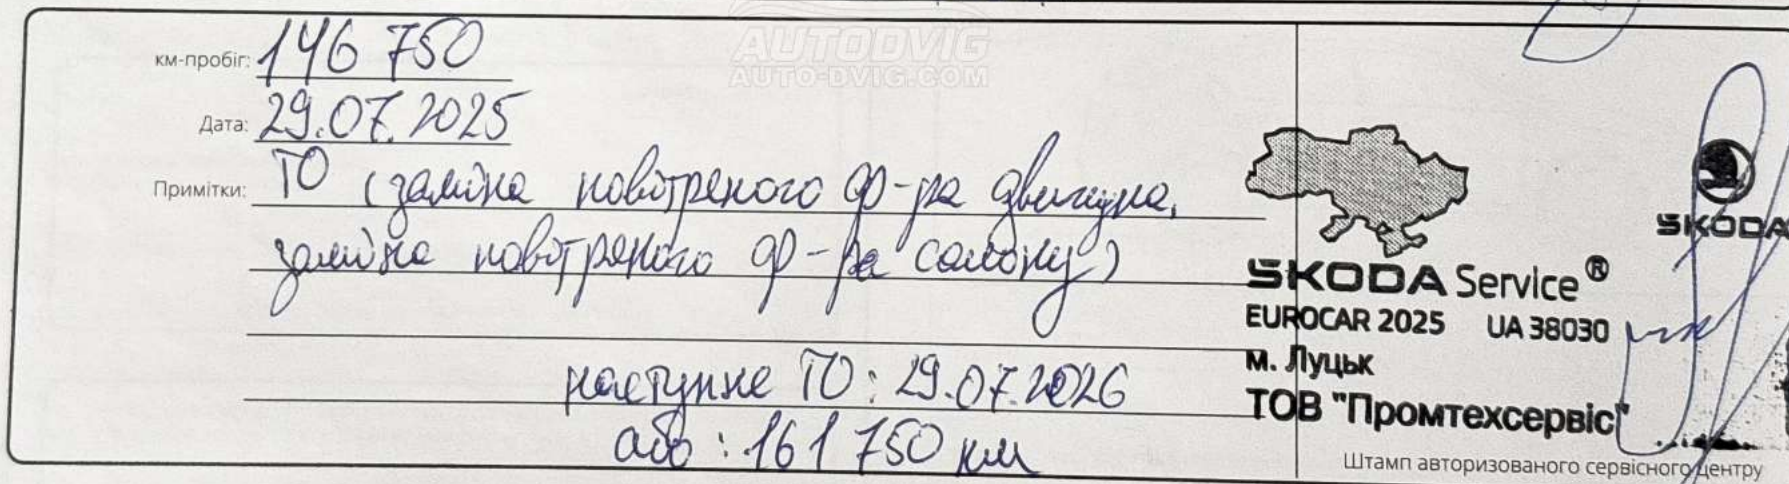 AUTODVIG
AUTO-DVIG.COM
км-пробіг: 146 750
Дата: 29.07.2025
Примітки: ТО (заміна повітряного ф-ра двигуна,
заміна повітряного ф-ра салону)
наступне ТО: 29.07.2026
або: 161 750 км
SKODA
SKODA Service ®
EUROCAR 2025 UA 38030
м. Луцьк
ТОВ "Промтехсервіс"
Штамп авторизованого сервісного центру